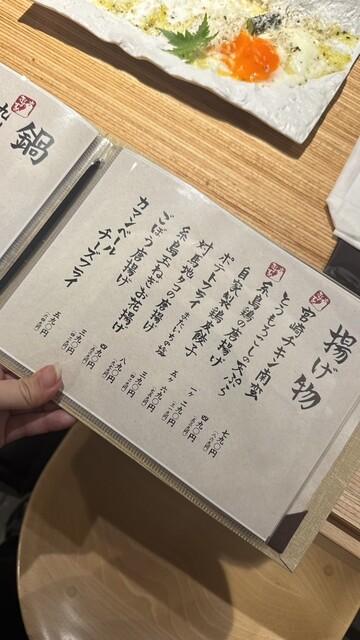 揚げ物
宮崎チキン南蛮 七九〇円
とうもろこしの天ぷら 四九〇円
糸島鶏の唐揚げ 一ヶ 二九〇円
自家製鶏皮餃子 五ヶ 六九〇円
ポテトフライ またいちの塩 三九〇円
対馬地タコの唐揚げ 八九〇円
糸島玉ねぎお花揚げ 四九〇円
ごぼう唐揚げ 三九〇円
カマンベール
チーズフライ 五九〇円
鍋
九